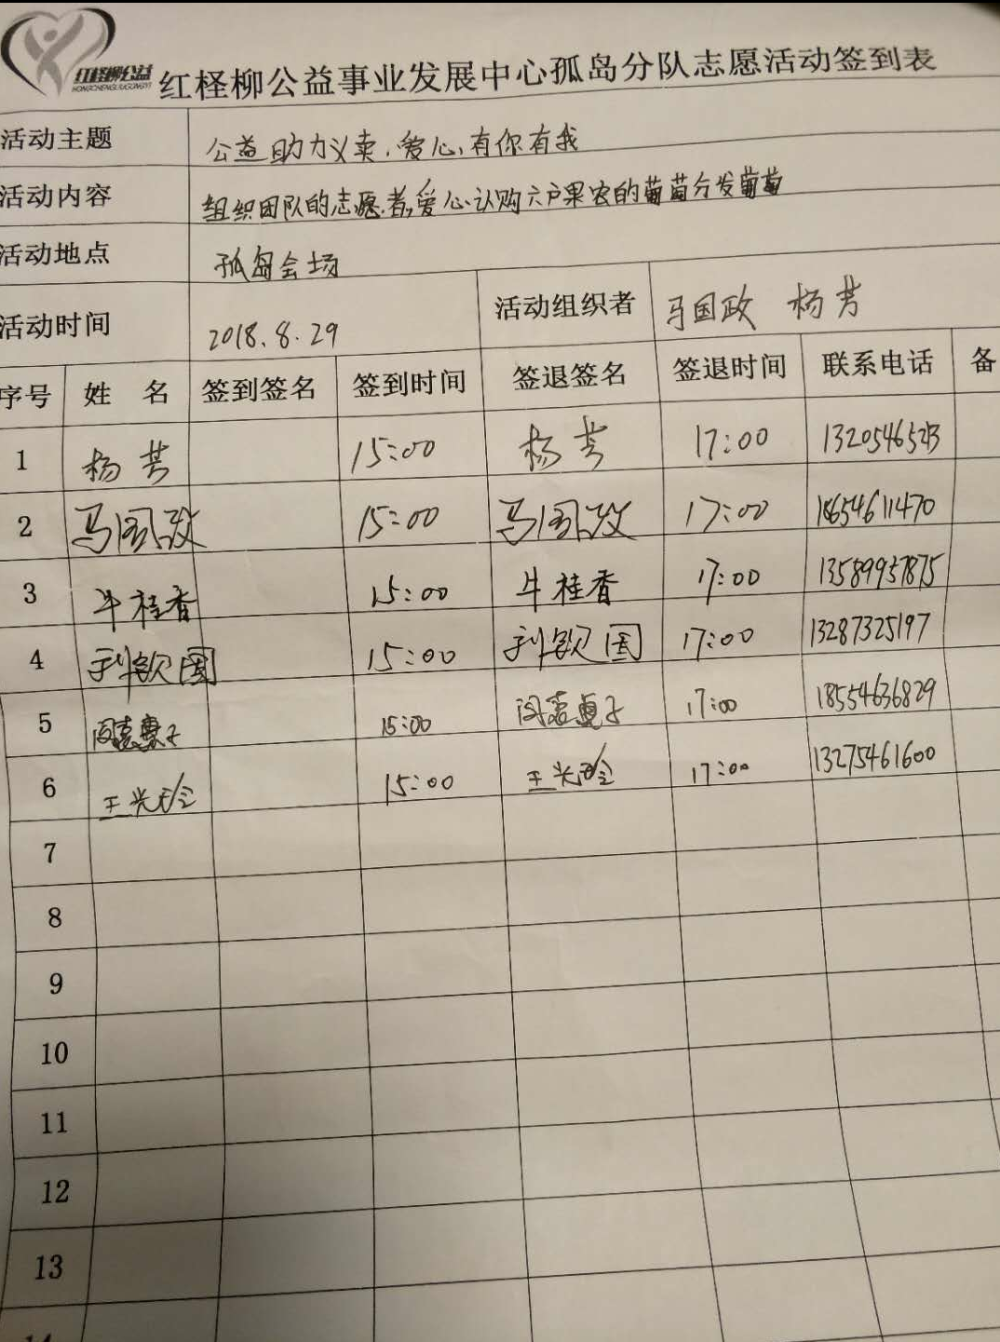 红柽柳公益
HONGCHENGLIUGONGYI
红柽柳公益事业发展中心孤岛分队志愿活动签到表
活动主题 公益助力义卖,爱心,有你有我
活动内容 组织团队的志愿者,爱心认购六户果农的葡萄分发葡萄
活动地点 孤岛会场
活动时间 2018.8.29 活动组织者 马国政 杨芳
序号 姓 名 签到签名 签到时间 签退签名 签退时间 联系电话 备
1 杨芳 15:00 杨芳 17:00
2 马国政 15:00 马国政 17:00 18654611470
3 牛桂香 15:00 牛桂香 17:00 13589957875
4 15:00 17:00 13287325197
5 15:00 17:00 18554636829
6 15:00 17:00 13275461600
7
8
9
10
11
12
13
14